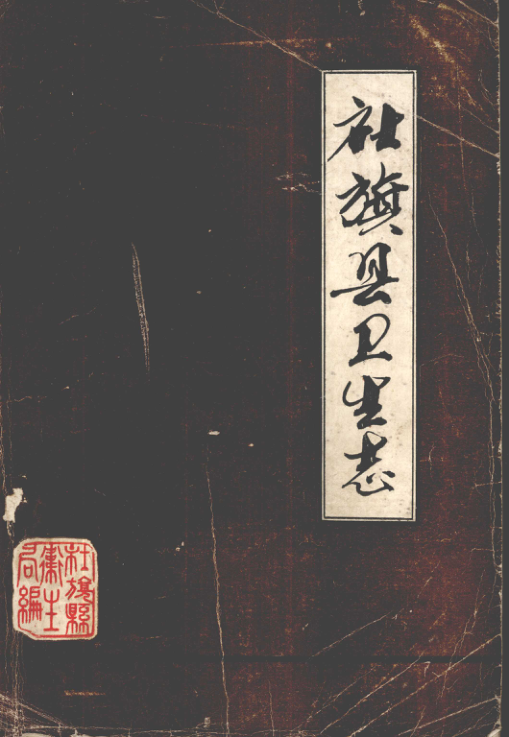 社旗县卫生志
社旗縣
衞生
局編